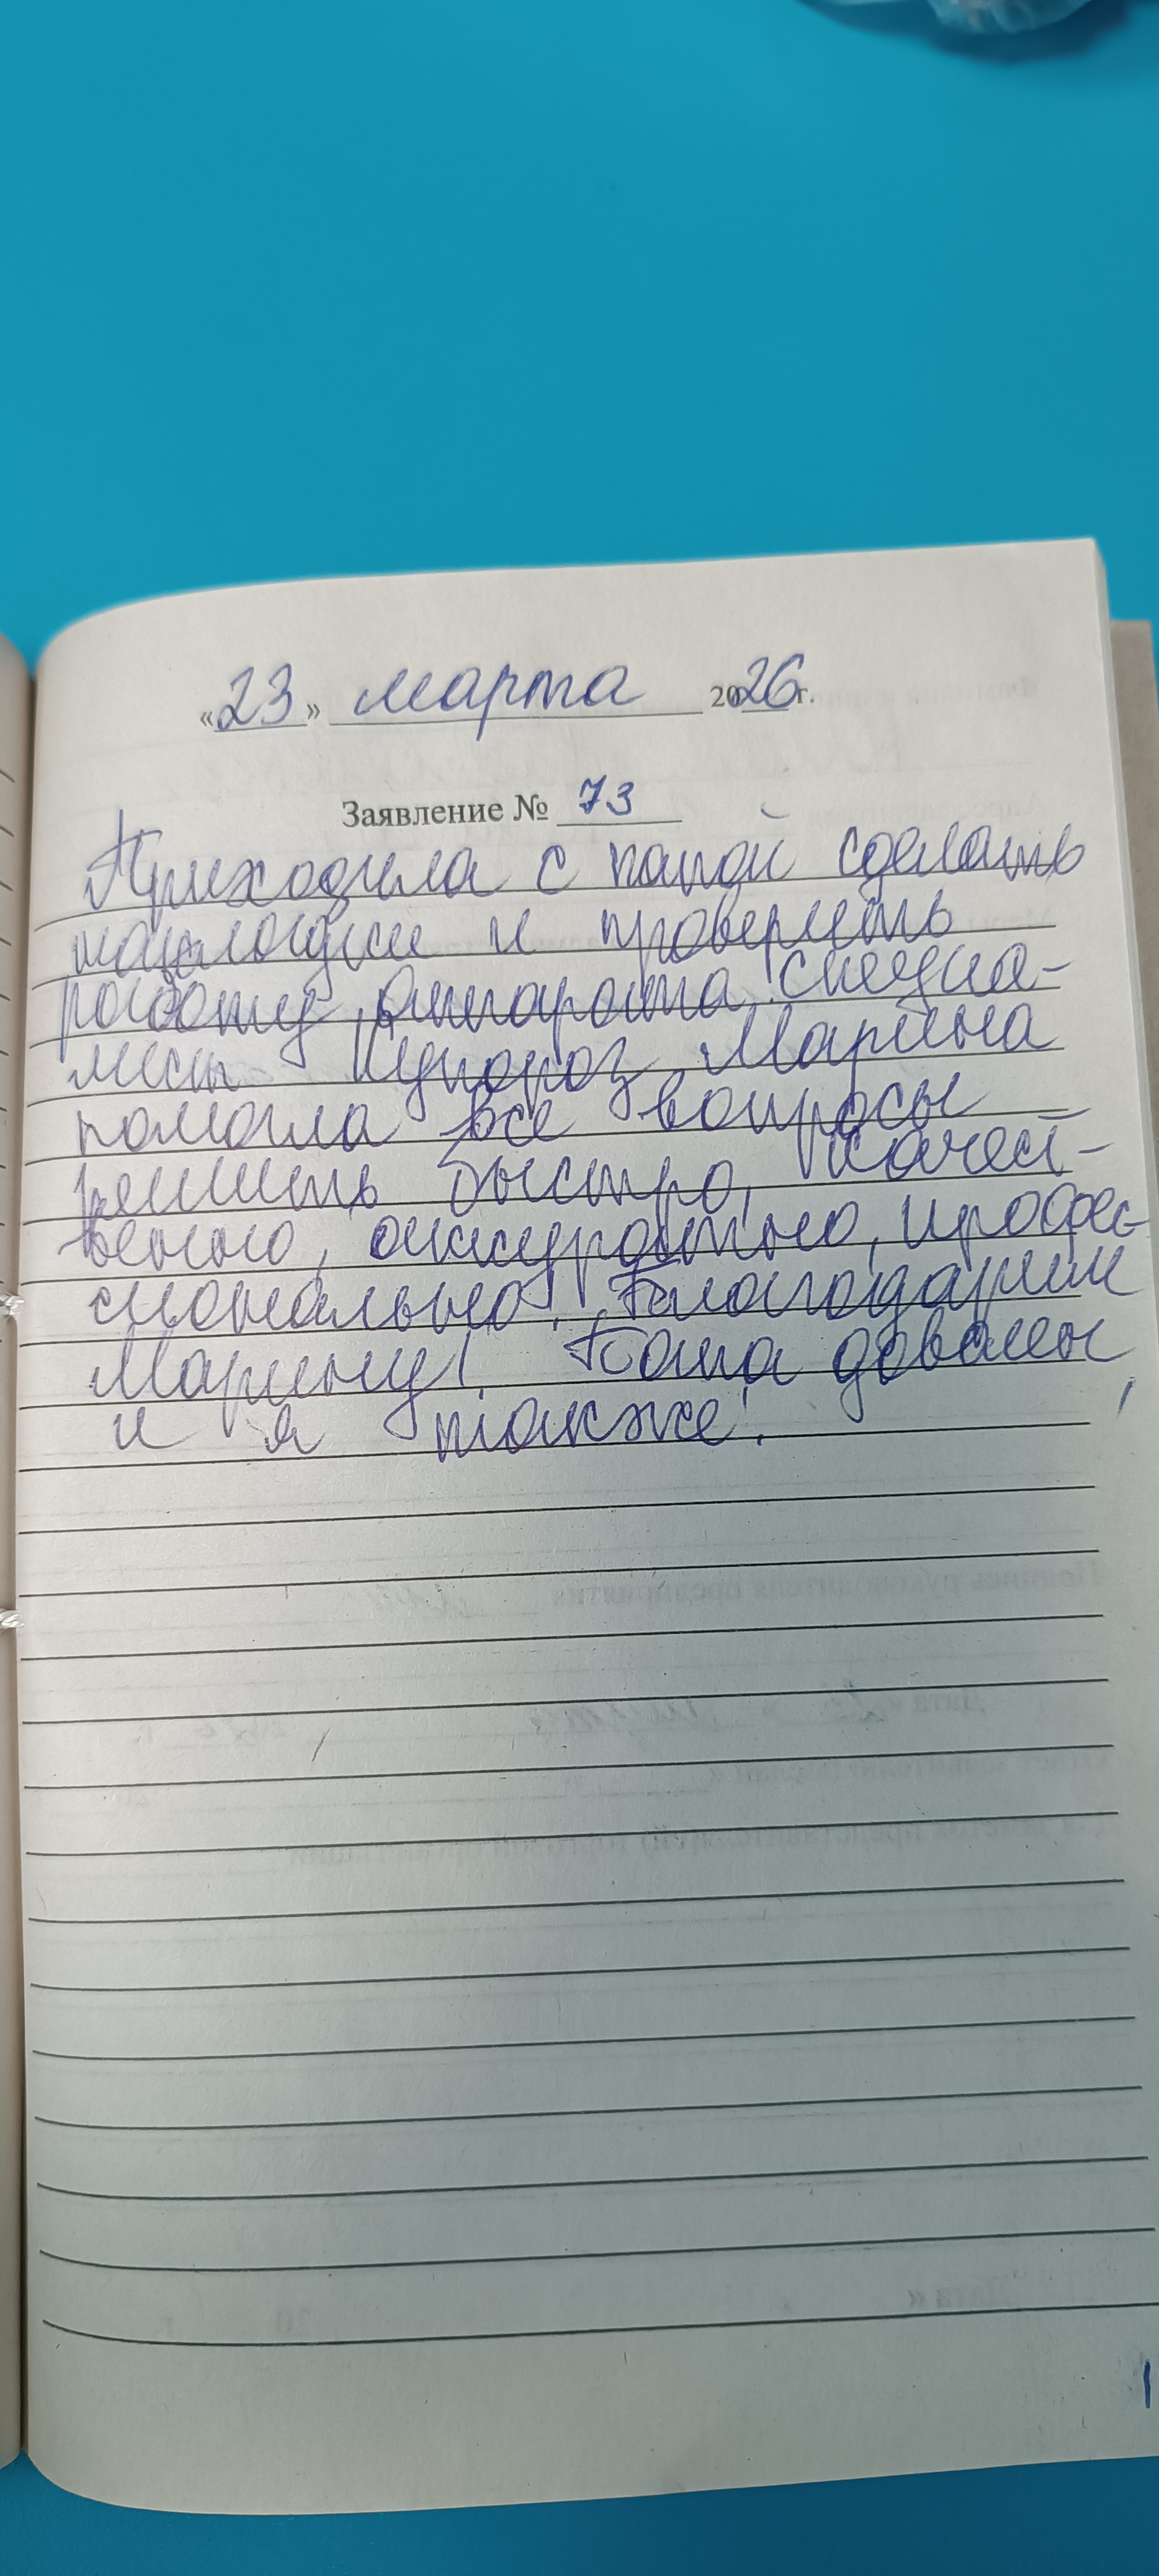 «23» марта 2026 г.
Заявление № 73
Приходила с папой сделать
и проверить
работу аппарата. Специа-
лист Марина
помогла все вопросы
решить быстро, качест-
венно, аккуратно, профес-
сионально! Благодарим
Марину! Папа доволен
и я также!